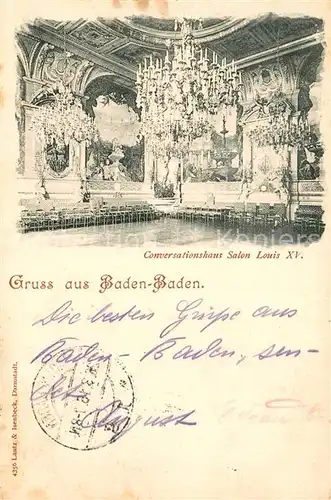 Conversationshaus Salon Louis XV.
Gruss aus Baden-Baden.
Die besten Grüße aus
Baden-Baden, sen-
det
August
4256 Lautz & Isenbeck, Darmstadt.